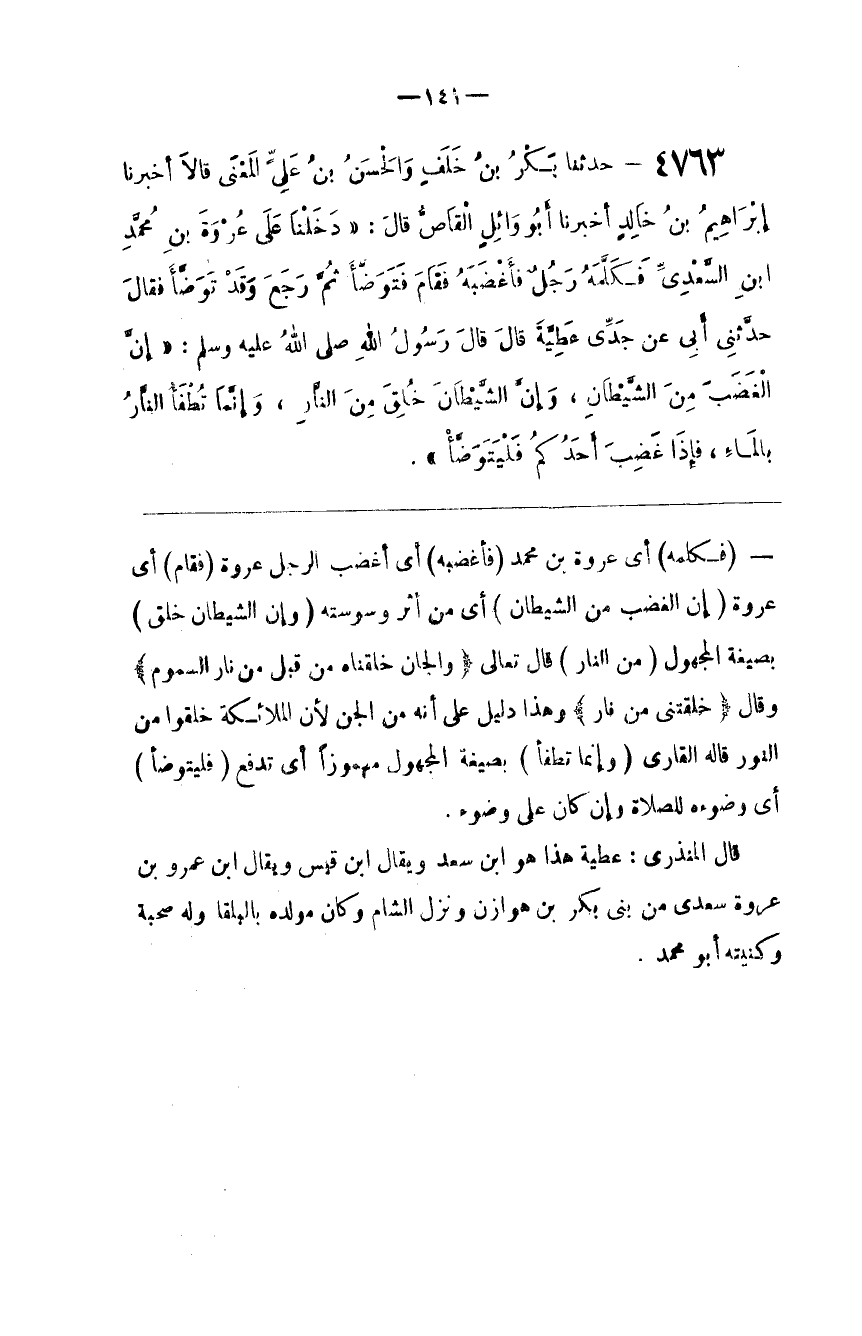 — ١٤١ —
٤٧٦٣ – حدثنا بَكْرُ بنُ خَلَفٍ وَالْحَسَنُ بنُ عَلِيٍّ المَعْنَى قالاَ أخبرنا
إبْرَاهِيمُ بنُ خالِدٍ أخبرنا أَبُو وَائِلٍ الْقَاصُّ قالَ : « دَخَلْنَا عَلَى عُرْوَةَ بنِ مُحمَّدِ
ابنِ السَّعْدِيِّ فَكلَّمَهُ رَجُلٌ فأَغْضَبَهُ فَقَامَ فَتَوَضَّأَ ثُمَّ رَجَعَ وَقَدْ تَوَضَّأَ فقالَ
حدَّثنِى أَبِى عن جَدِّى عَطِيَّةَ قالَ قالَ رَسُولُ اللهِ صلى اللهُ عليه وسلم : « إنَّ
الْغَضَبَ مِنَ الشَّيْطَانِ ، وَإنَّ الشَّيْطَانَ خُلِقَ مِنَ النَّارِ ، وَإنَّمَا تُطْفَأُ النَّارُ
بالمَـاءِ ، فإِذَا غَضِبَ أَحَدُكُمْ فَلْيَتَوَضَّأْ » .
— (فـكلمه) أى عروة بن محمد (فأغضبه) أى أغضب الرجل عروة (فقام) أى
عروة ( إن الغضب من الشيطان ) أى من أثر وسوسته ( وإن الشيطان خلق )
بصيغة المجهول ( من النار ) قال تعالى ﴿ والجان خلقناه من قبل من نار السموم ﴾
وقال ﴿ خلقتنى من نار ﴾ وهذا دليل على أنه من الجن لأن الملائـكة خلقوا من
النور قاله القارى ( وإنما تطفأ ) بصيغة المجهول مهموزاً أى تدفع ( فليتوضأ )
أى وضوءه للصلاة وإن كان على وضوء .
قال المنذرى : عطية هذا هو ابن سعد ويقال ابن قيس ويقال ابن عمرو بن
عروة سعدى من بنى بكر بن هوازن ونزل الشام وكان مولده بالبلقا وله صحبة
وكنيته أبو محمد .